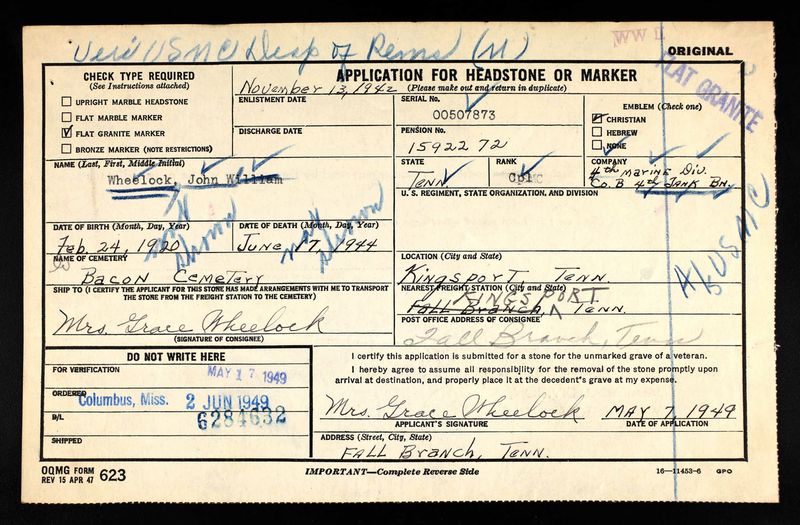 Veri USMC Disp of Rems (M)
WW II
ORIGINAL
FLAT GRANITE
CHECK TYPE REQUIRED
(See Instructions attached)
UPRIGHT MARBLE HEADSTONE
FLAT MARBLE MARKER
FLAT GRANITE MARKER
BRONZE MARKER (NOTE RESTRICTIONS)
APPLICATION FOR HEADSTONE OR MARKER
(Please make out and return in duplicate)
November 13, 1942
ENLISTMENT DATE
DISCHARGE DATE
SERIAL No.
00507873
PENSION No.
15922 72
EMBLEM (Check one)
CHRISTIAN
HEBREW
NONE
NAME (Last, First, Middle Initial)
Wheelock, John William
STATE
Tenn
RANK
Cpl
COMPANY
4th Marine Div.
Co. B 4th Tank Bn.
U. S. REGIMENT, STATE ORGANIZATION, AND DIVISION
DATE OF BIRTH (Month, Day, Year)
Feb. 24, 1920
not shown
DATE OF DEATH (Month, Day, Year)
June 17, 1944
not shown
USMC
NAME OF CEMETERY
Bacon Cemetery
LOCATION (City and State)
Kingsport, Tenn.
SHIP TO (I CERTIFY THE APPLICANT FOR THIS STONE HAS MADE ARRANGEMENTS WITH ME TO TRANSPORT
THE STONE FROM THE FREIGHT STATION TO THE CEMETERY)
Mrs. Grace Wheelock
(SIGNATURE OF CONSIGNEE)
NEAREST FREIGHT STATION (City and State)
KINGSPORT
Fall Branch, Tenn.
POST OFFICE ADDRESS OF CONSIGNEE
Fall Branch, Tenn
DO NOT WRITE HERE
FOR VERIFICATION
MAY 17 1949
ORDERED
Columbus, Miss. 2 JUN 1949
B/L
6284632
SHIPPED
I certify this application is submitted for a stone for the unmarked grave of a veteran.
I hereby agree to assume all responsibility for the removal of the stone promptly upon
arrival at destination, and properly place it at the decedent's grave at my expense.
Mrs. Grace Wheelock MAY 7, 1949
APPLICANT'S SIGNATURE DATE OF APPLICATION
ADDRESS (Street, City, State)
Fall Branch, Tenn.
OQMG FORM
REV 15 APR 47 623
IMPORTANT—Complete Reverse Side
16—11453-6 GPO